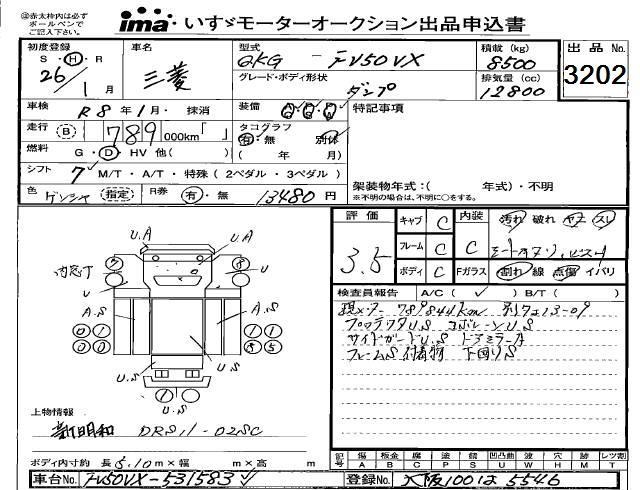 ㊟赤太枠内は必ず
ボールペンで
ご記入下さい。
ima いすゞモーターオークション出品申込書
初度登録 S・H・R 26/1月
車名 三菱
型式 QKG - FV50VX
グレード・ボディ形状 ダンプ
積載(kg) 8500
排気量(cc) 12800
出品No. 3202
車検 R8年1月・抹消
装備
走行 B 789 000km「 」
タコグラフ 有・無 別体 ( 年 月)
燃料 G・D・HV 他( )
シフト 7 M/T・A/T・特殊(2ペダル・3ペダル)
色 指定 R券 有・無 13480円
特記事項
架装物年式:( 年式)・不明
※不明の場合は、不明に○をする。
評価 3.5
キャブ C 内装 汚れ 破れ ヤケ スレ
フレーム C C
ボディ C Fガラス 割れ 線 点傷 イバリ
検査員報告 A/C(✓) B/T( )
789844km
サイドガードU.S ドアミラーA
フレームS 付着物 下回りS
U.A
U.A
U
A.S
A.S
U.S
U.S
U.S
上物情報
新明和 DRS11-02SC
ボディ内寸約 長5.10m×幅 m×高 m
記号 傷A 板金B 腐C 塗P 錆S 凹凸曲U 波W 穴H 跡M レツ割T
車台No. FV50VX-531583
登録No. 大阪100は5546